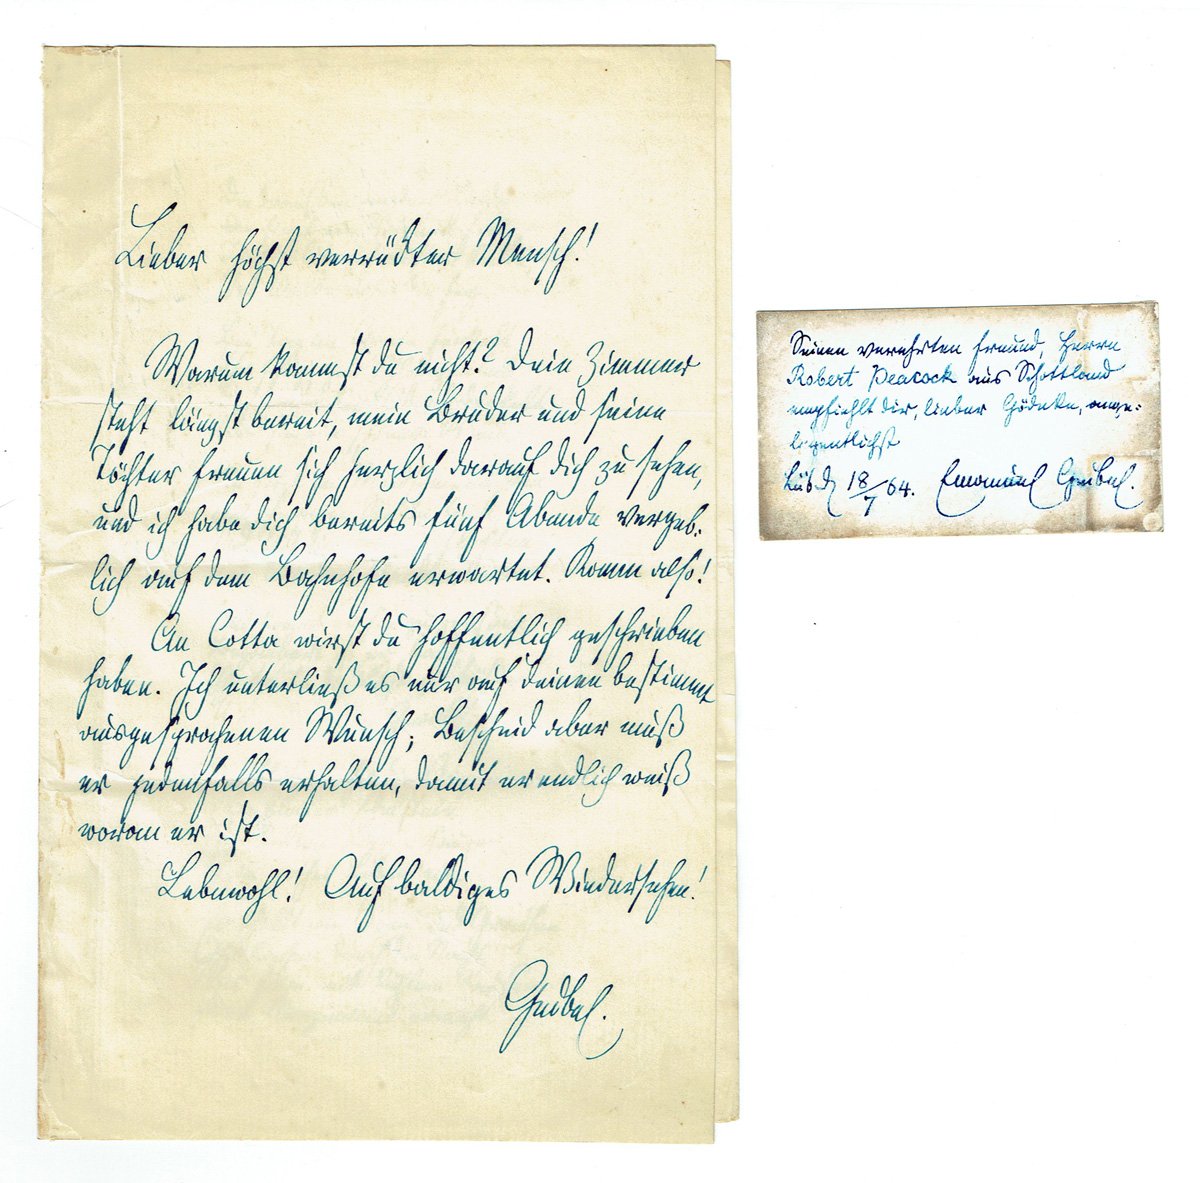 Lieber höchst verrückter Mensch!
Warum kommst du nicht? Dein Zimmer
steht längst bereit, mein Bruder und seine
Töchter freuen sich herzlich darauf dich zu sehen,
und ich habe dich bereits fünf Abende vergeb-
lich auf dem Bahnhofe erwartet. Komm also!
An Cotta wirst du hoffentlich geschrieben
haben. Ich unterließ es nur auf deinen bestimmt
ausgesprochenen Wunsch; Bescheid aber muß
er jedenfalls erhalten, damit er endlich weiß
woran er ist.
Lebewohl! Auf baldiges Wiedersehen!
Geibel.
Seinen verehrten Freund, Herrn
Robert Peacock aus Schottland
empfiehlt dir, lieber Gödeke, ange-
legentlichst
18/7 64. Emanuel Geibel.